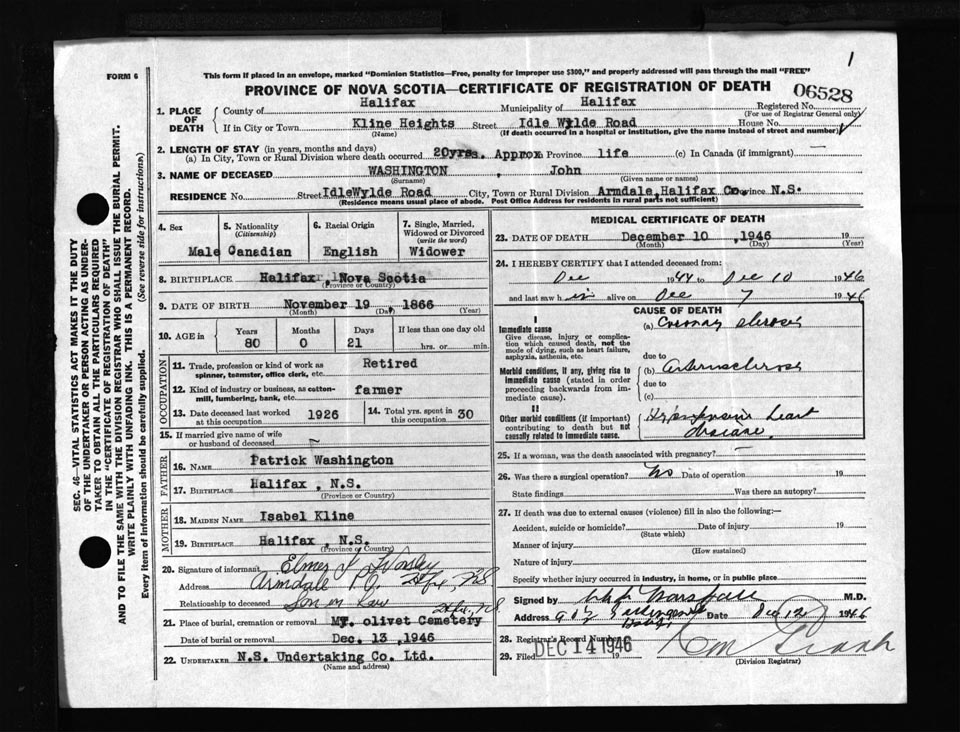 1
FORM 6
This form if placed in an envelope, marked "Dominion Statistics—Free, penalty for improper use $300," and properly addressed will pass through the mail "FREE"
PROVINCE OF NOVA SCOTIA—CERTIFICATE OF REGISTRATION OF DEATH
06528
1. PLACE OF DEATH
County of Halifax Municipality of Halifax Registered No.
(For use of Registrar General only)
If in City or Town Kline Heights Street Idle Wylde Road House No.
(Name) (If death occurred in a hospital or institution, give the name instead of street and number)
2. LENGTH OF STAY (in years, months and days)
(a) In City, Town or Rural Division where death occurred 20yrs. Approx Province life (c) In Canada (if immigrant) —
3. NAME OF DECEASED WASHINGTON , John
(Surname) (Given name or names)
RESIDENCE No. Street IdleWylde Road City, Town or Rural Division Armdale,Halifax Co. Province N.S.
(Residence means usual place of abode. Post Office Address for residents in rural parts not sufficient)
4. Sex
Male
5. Nationality
(Citizenship)
Canadian
6. Racial Origin
English
7. Single, Married, Widowed or Divorced
(write the word)
Widower
8. BIRTHPLACE Halifax , Nova Scotia
(Province or Country)
9. DATE OF BIRTH November 19 , 1866
(Month) (Day) (Year)
10. AGE in
Years Months Days If less than one day old
80 0 21 hrs. or min.
OCCUPATION
11. Trade, profession or kind of work as spinner, teamster, office clerk, etc. Retired
12. Kind of industry or business, as cotton-mill, lumbering, bank, etc. farmer
13. Date deceased last worked at this occupation 1926
14. Total yrs. spent in this occupation 30
15. If married give name of wife or husband of deceased ~
FATHER
16. NAME Patrick Washington
17. BIRTHPLACE Halifax , N.S.
(Province or Country)
MOTHER
18. MAIDEN NAME Isabel Kline
19. BIRTHPLACE Halifax , N.S.
(Province or Country)
20. Signature of informant Elmer J
Address Armdale P.O. Hfx, NS
Relationship to deceased Son in Law
Hfx, NS
21. Place of burial, cremation or removal MT. olivet Cemetery
Date of burial or removal Dec. 13 ,1946
22. UNDERTAKER N.S. Undertaking Co. Ltd.
(Name and address)
MEDICAL CERTIFICATE OF DEATH
23. DATE OF DEATH December 10 ,1946 19
(Month) (Day) (Year)
24. I HEREBY CERTIFY that I attended deceased from:
Dec 1944 to Dec 10 1946
and last saw him alive on Dec 7 1946
CAUSE OF DEATH
I
Immediate cause
Give disease, injury or complication which caused death, not the mode of dying, such as heart failure, asphyxia, asthenia, etc.
(a) Coronary sclerosis
due to
Morbid conditions, if any, giving rise to immediate cause (stated in order proceeding backwards from immediate cause).
(b) Arteriosclerosis
due to
(c)
II
Other morbid conditions (if important) contributing to death but not causally related to immediate cause.
Hypertensive heart
disease.
25. If a woman, was the death associated with pregnancy?
26. Was there a surgical operation? No Date of operation 19
State findings Was there an autopsy?
27. If death was due to external causes (violence) fill in also the following:—
Accident, suicide or homicide? Date of injury 19
(State which)
Manner of injury
(How sustained)
Nature of injury
Specify whether injury occurred in industry, in home, or in public place
Signed by M.D.
Address Date Dec 12 1946
28. Registrar's Record Number
29. Filed DEC 14 1946 19
(Division Registrar)
SEC. 46—VITAL STATISTICS ACT MAKES IT THE DUTY
OF THE UNDERTAKER OR PERSON ACTING AS UNDER-
TAKER TO OBTAIN ALL THE PARTICULARS REQUIRED
IN THE "CERTIFICATE OF REGISTRATION OF DEATH"
AND TO FILE THE SAME WITH THE DIVISION REGISTRAR WHO SHALL ISSUE THE BURIAL PERMIT.
WRITE PLAINLY WITH UNFADING INK. THIS IS A PERMANENT RECORD.
Every item of information should be carefully supplied. (See reverse side for instructions.)